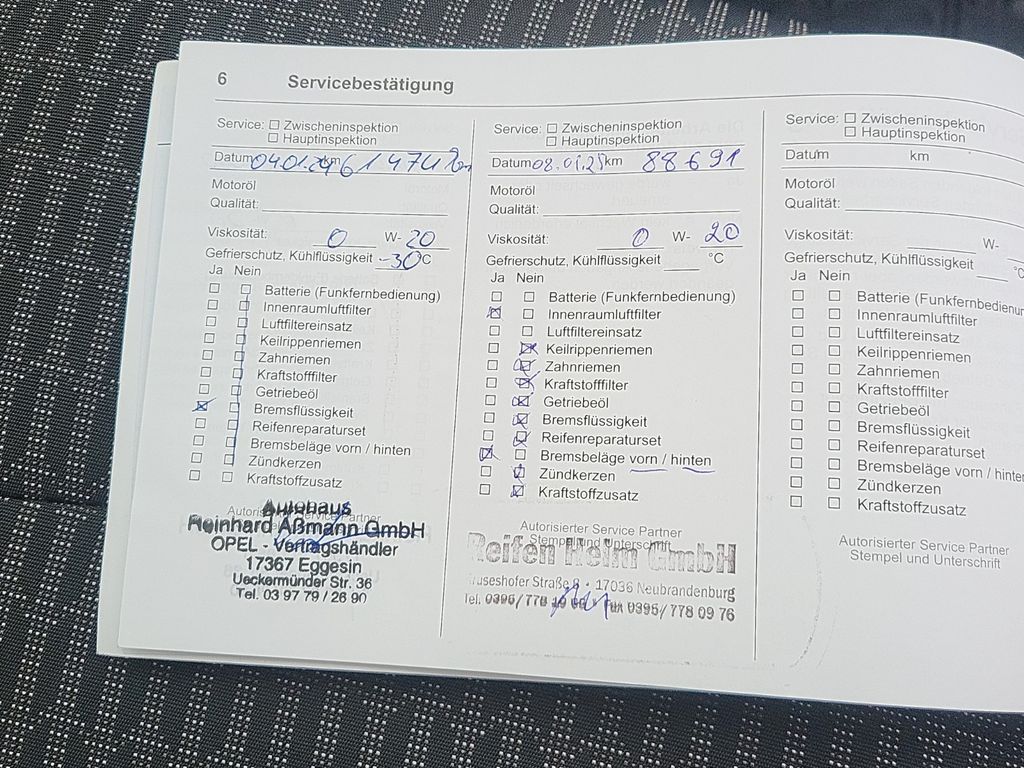 6 Servicebestätigung
Service: ☐ Zwischeninspektion
☐ Hauptinspektion
Datum 04.01.24 km 61474 km
Motoröl
Qualität:
Viskosität: 0 W- 20
Gefrierschutz, Kühlflüssigkeit -30°C
Ja Nein
☐ ☐ Batterie (Funkfernbedienung)
☐ ☐ Innenraumluftfilter
☐ ☐ Luftfiltereinsatz
☐ ☐ Keilrippenriemen
☐ ☐ Zahnriemen
☐ ☐ Kraftstofffilter
☐ ☐ Getriebeöl
☒ ☐ Bremsflüssigkeit
☐ ☐ Reifenreparaturset
☐ ☐ Bremsbeläge vorn / hinten
☐ ☐ Zündkerzen
☐ ☐ Kraftstoffzusatz
Autorisierter Service Partner
Autohaus
Reinhard Aßmann GmbH
OPEL - Vertragshändler
17367 Eggesin
Ueckermünder Str. 36
Tel. 03 97 79 / 26 90
Service: ☐ Zwischeninspektion
☐ Hauptinspektion
Datum 08.01.25 km 88691
Motoröl
Qualität:
Viskosität: 0 W- 20
Gefrierschutz, Kühlflüssigkeit °C
Ja Nein
☐ ☐ Batterie (Funkfernbedienung)
☒ ☐ Innenraumluftfilter
☐ ☐ Luftfiltereinsatz
☐ ☒ Keilrippenriemen
☐ ☒ Zahnriemen
☐ ☒ Kraftstofffilter
☐ ☒ Getriebeöl
☐ ☒ Bremsflüssigkeit
☐ ☒ Reifenreparaturset
☒ ☐ Bremsbeläge vorn / hinten
☐ ☒ Zündkerzen
☐ ☒ Kraftstoffzusatz
Autorisierter Service Partner
Stempel und Unterschrift
Reifen Helm GmbH
17036 Neubrandenburg
Fax 0395/ 778 09 76
Service: ☐ Zwischeninspektion
☐ Hauptinspektion
Datum km
Motoröl
Qualität:
Viskosität: W-
Gefrierschutz, Kühlflüssigkeit °C
Ja Nein
☐ ☐ Batterie (Funkfernbedienun
☐ ☐ Innenraumluftfilter
☐ ☐ Luftfiltereinsatz
☐ ☐ Keilrippenriemen
☐ ☐ Zahnriemen
☐ ☐ Kraftstofffilter
☐ ☐ Getriebeöl
☐ ☐ Bremsflüssigkeit
☐ ☐ Reifenreparaturset
☐ ☐ Bremsbeläge vorn / hinten
☐ ☐ Zündkerzen
☐ ☐ Kraftstoffzusatz
Autorisierter Service Partner
Stempel und Unterschrift